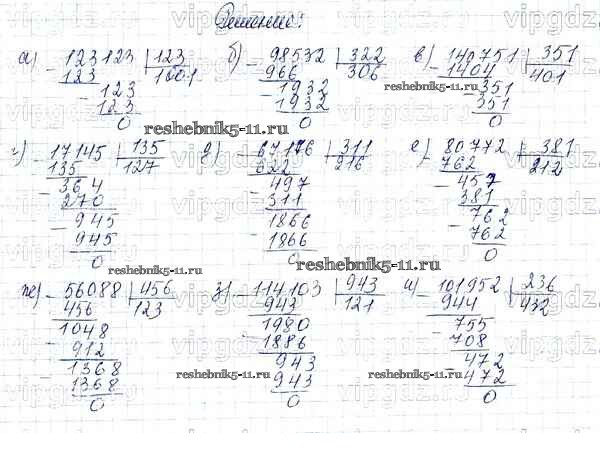 Решение:
а) 123123 | 123 б) 98532 | 322 в) 140751 | 351
123 1001 966 306 1404 401
123 1932 351
123 1932 351
0 0 0
reshebnik5-11.ru
г) 17145 | 135 д) 67176 | 311 е) 80772 | 381
135 127 622 216 762 212
364 497 457
270 311 381
945 1866 762
945 1866 762
0 0 0
reshebnik5-11.ru
reshebnik5-11.ru
ж) 56088 | 456 з) 114103 | 943 и) 101952 | 236
456 123 943 121 944 432
1048 1980 755
912 1886 708
1368 943 472
1368 943 472
0 0 0
reshebnik5-11.ru
reshebnik5-11.ru